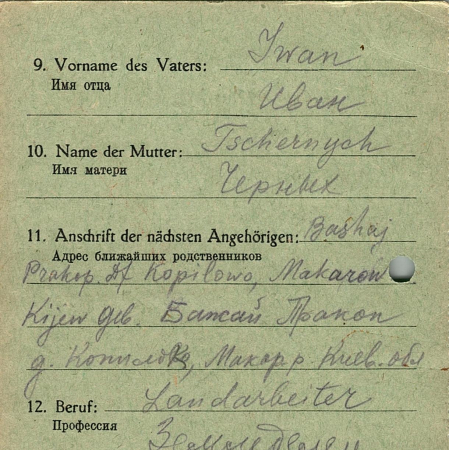 9. Vorname des Vaters: Iwan
Имя отца
Иван
10. Name der Mutter: Tschernych
Имя матери
Черных
11. Anschrift der nächsten Angehörigen: Bashaj
Адрес ближайших родственников
Prokop, Df Kopilowo, Makarow
Kijew Geb. Бажай Прокоп
д. Копилово, Макар р. Киев. обл
12. Beruf: Landarbeiter
Профессия
Земледелец